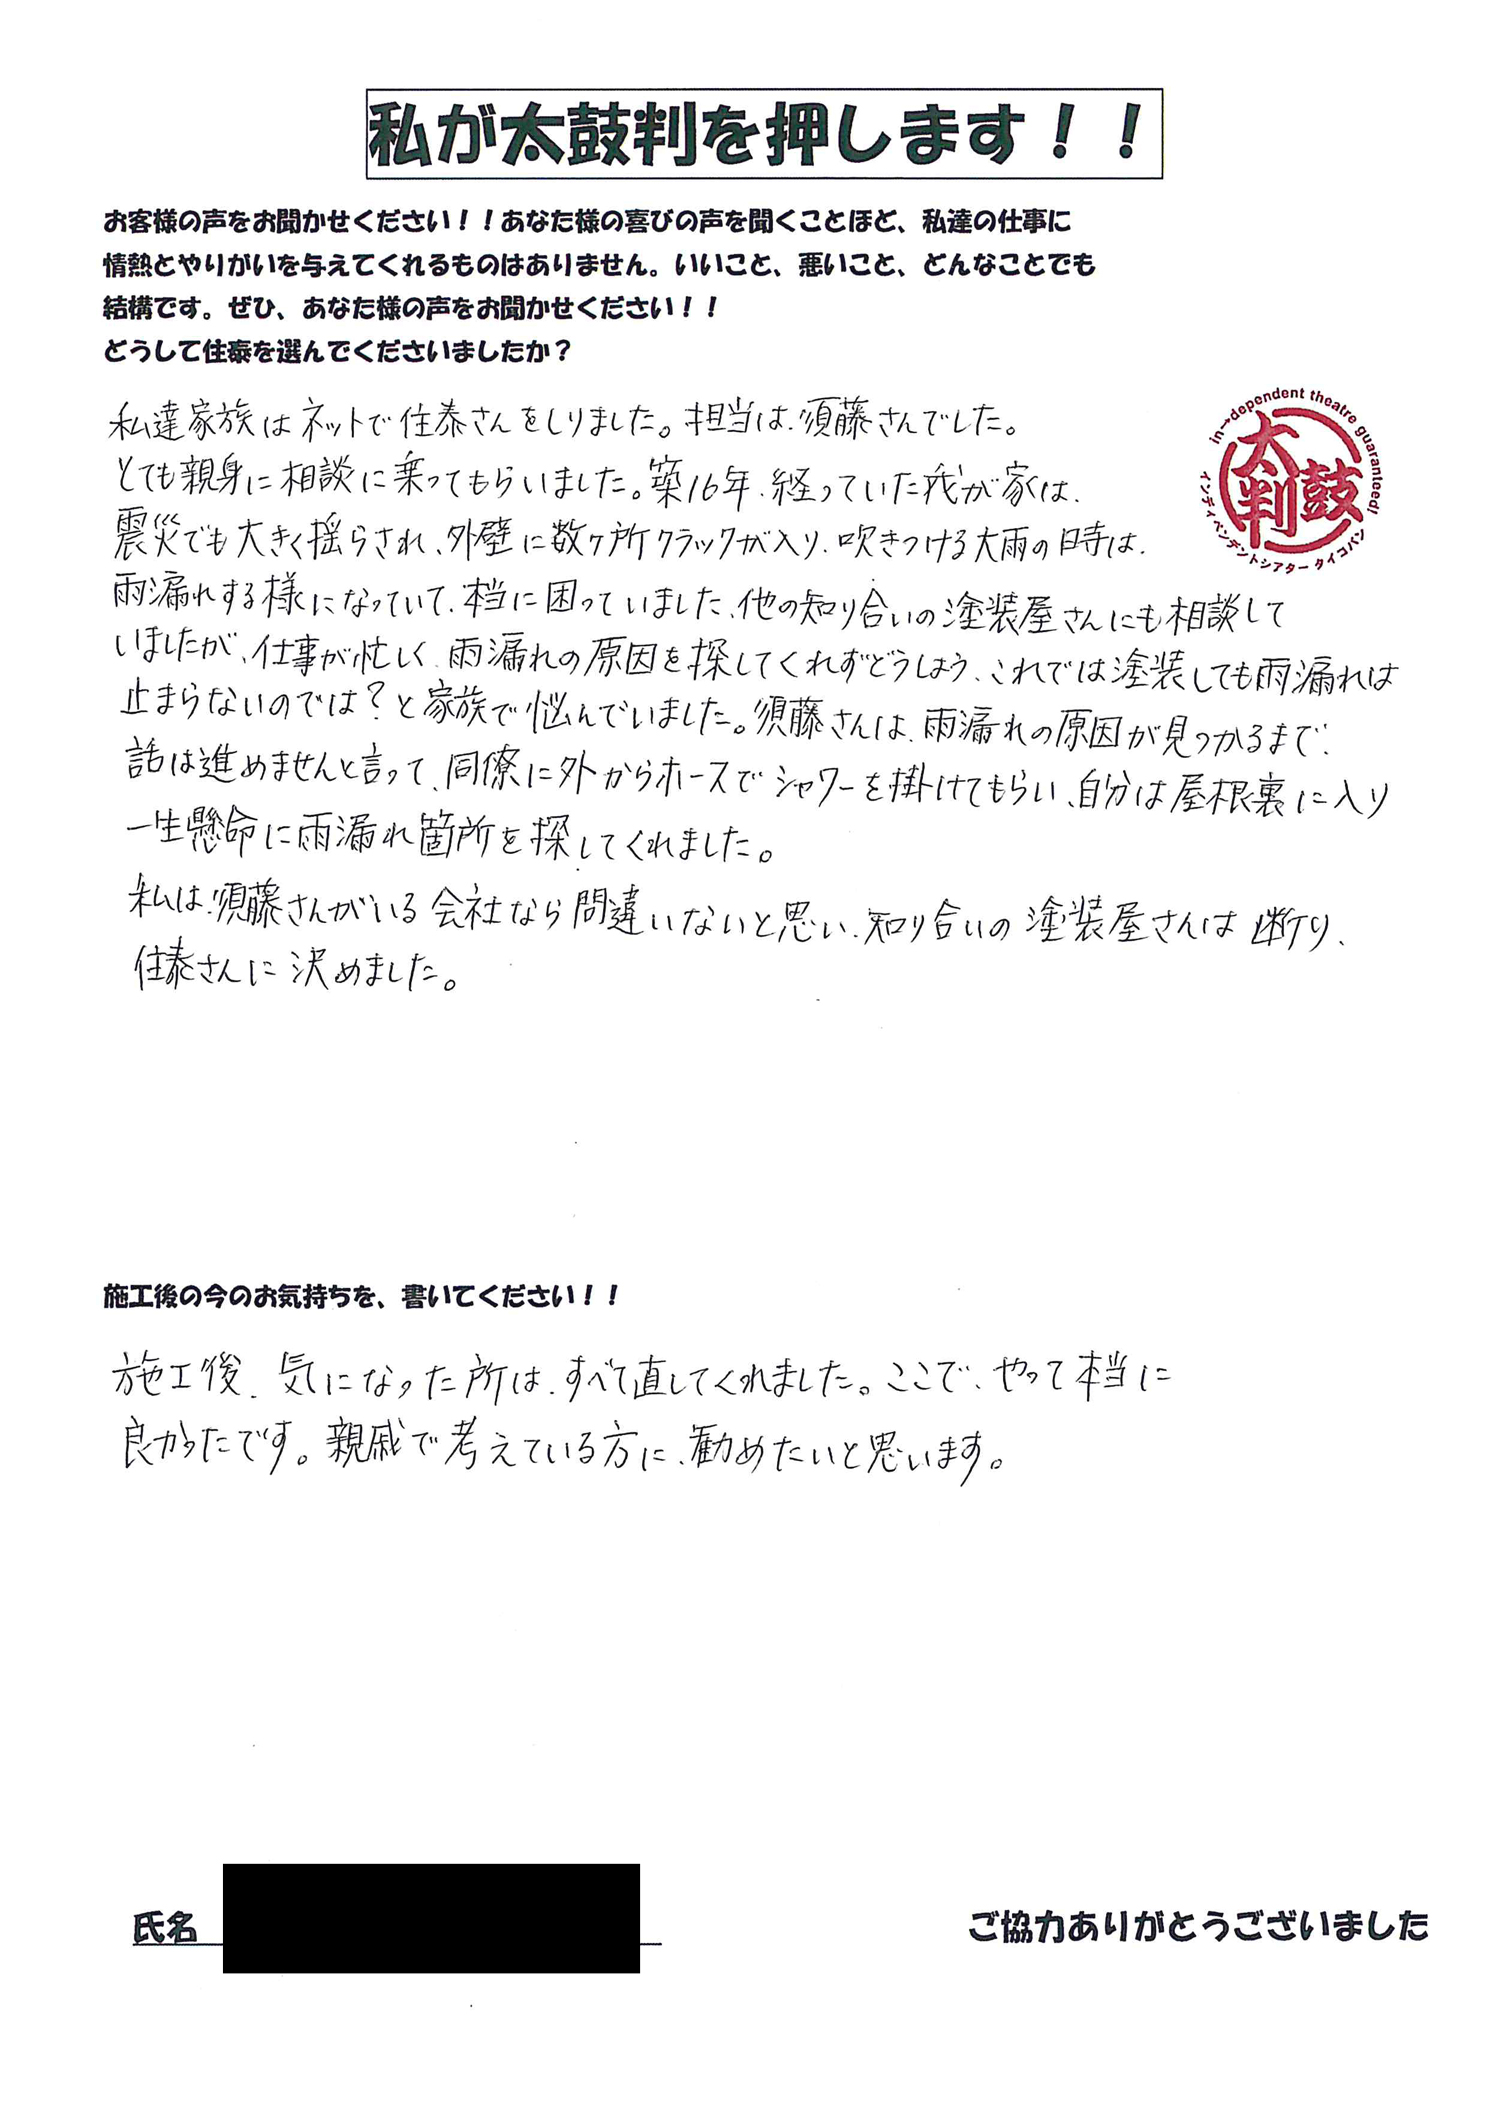 私が太鼓判を押します！！
お客様の声をお聞かせください！！あなた様の喜びの声を聞くことほど、私達の仕事に
情熱とやりがいを与えてくれるものはありません。いいこと、悪いこと、どんなことでも
結構です。ぜひ、あなた様の声をお聞かせください！！
どうして住泰を選んでくださいましたか？
in→dependent theatre guaranteed!
太鼓判
インディペンデントシアター タイコバン
私達家族はネットで住泰さんをしりました。担当は、須藤さんでした。
とても親身に相談に乗ってもらいました。築16年、経っていた我が家は、
震災でも大きく揺らされ、外壁に数ヶ所クラックが入り、吹きつける大雨の日時は、
雨漏れする様になっていて、本当に困っていました、他の知り合いの塗装屋さんにも相談して
いましたが、仕事が忙しく、雨漏れの原因を探してくれずどうしよう、これでは塗装しても雨漏れは
止まらないのでは？と家族で悩んでいました。須藤さんは、雨漏れの原因が見つかるまで、
話は進めませんと言って、同僚に外からホースでシャワーを掛けてもらい、自分は屋根裏に入り
一生懸命に雨漏れ箇所を探してくれました。
私は、須藤さんがいる会社なら間違いないと思い、知り合いの塗装屋さんは断り、
住泰さんに決めました。
施工後の今のお気持ちを、書いてください！！
施工後、気になった所は、すべて直してくれました。ここで、やって本当に
良かったです。親戚で考えている方に、勧めたいと思います。
氏名
ご協力ありがとうございました